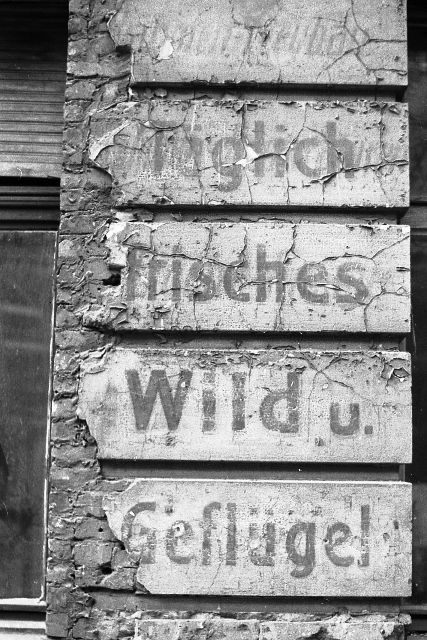 Täglich
frisches
Wild u.
Geflügel